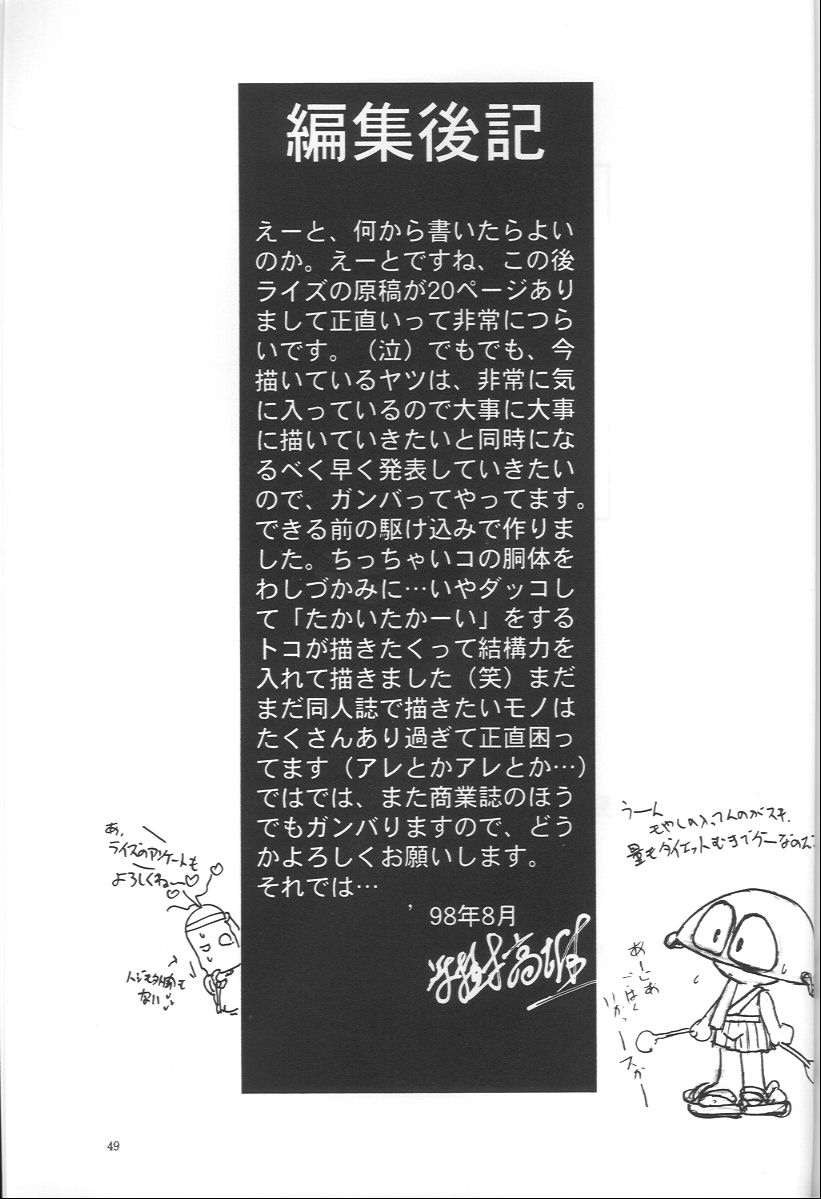 編集後記
えーと、何から書いたらよい
のか。えーとですね、この後
ライズの原稿が20ページあり
まして正直いって非常につら
いです。（泣）でもでも、今
描いているヤツは、非常に気
に入っているので大事に大事
に描いていきたいと同時にな
るべく早く発表していきたい
ので、ガンバってやってます。
できる前の駆け込みで作りま
した。ちっちゃいコの胴体を
わしづかみに…いやダッコし
て「たかいたかーい」をする
トコが描きたくって結構力を
入れて描きました（笑）まだ
まだ同人誌で描きたいモノは
たくさんあり過ぎて正直困っ
てます（アレとかアレとか…）
ではでは、また商業誌のほう
でもガンバりますので、どう
かよろしくお願いします。
それでは…
’98年8月
あ、
ライズのアンケートも
よろしくね〜♡
ない
うーん
49